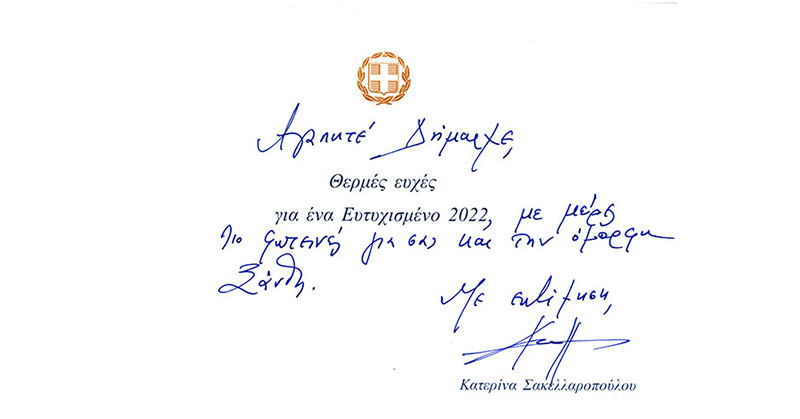 Αγαπητέ Δήμαρχε,
Θερμές ευχές
για ένα Ευτυχισμένο 2022, με μέρες
πιο φωτεινές για σας και την όμορφη
Ξάνθη.
Με εκτίμηση,
Κατερίνα Σακελλαροπούλου